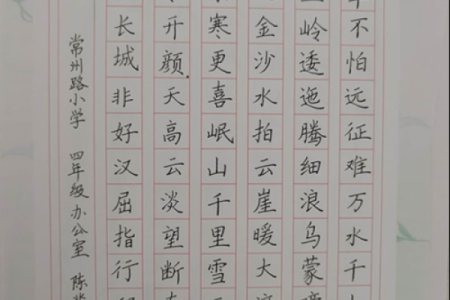 不怕远征难万水千
岭逶迤腾细浪乌蒙
金沙水拍云崖暖大
寒更喜岷山千里雪
开颜.天高云淡望断
长城非好汉屈指行
常州路小学 四年级办公室 陈